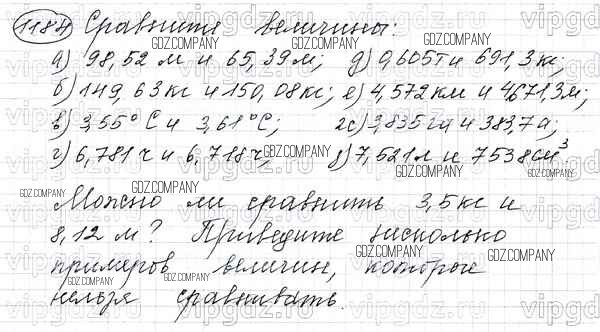 1184 Сравните величины:
а) 98,52 м и 65,39 м; д) 0,605т и 691,3кг;
б) 149,63кг и 150,08кг; е) 4,572 км и 4671,3м;
в) 3,55°С и 3,61°С; ж) 3,835га и 383,7а;
г) 6,781 ч и 6,718ч; з) 7,521л и 7538см³
Можно ли сравнить 3,5кг и
8,12 м? Приведите несколько
примеров величин, которые
нельзя сравнивать.
GDZ.COMPANY
vipgdz.ru